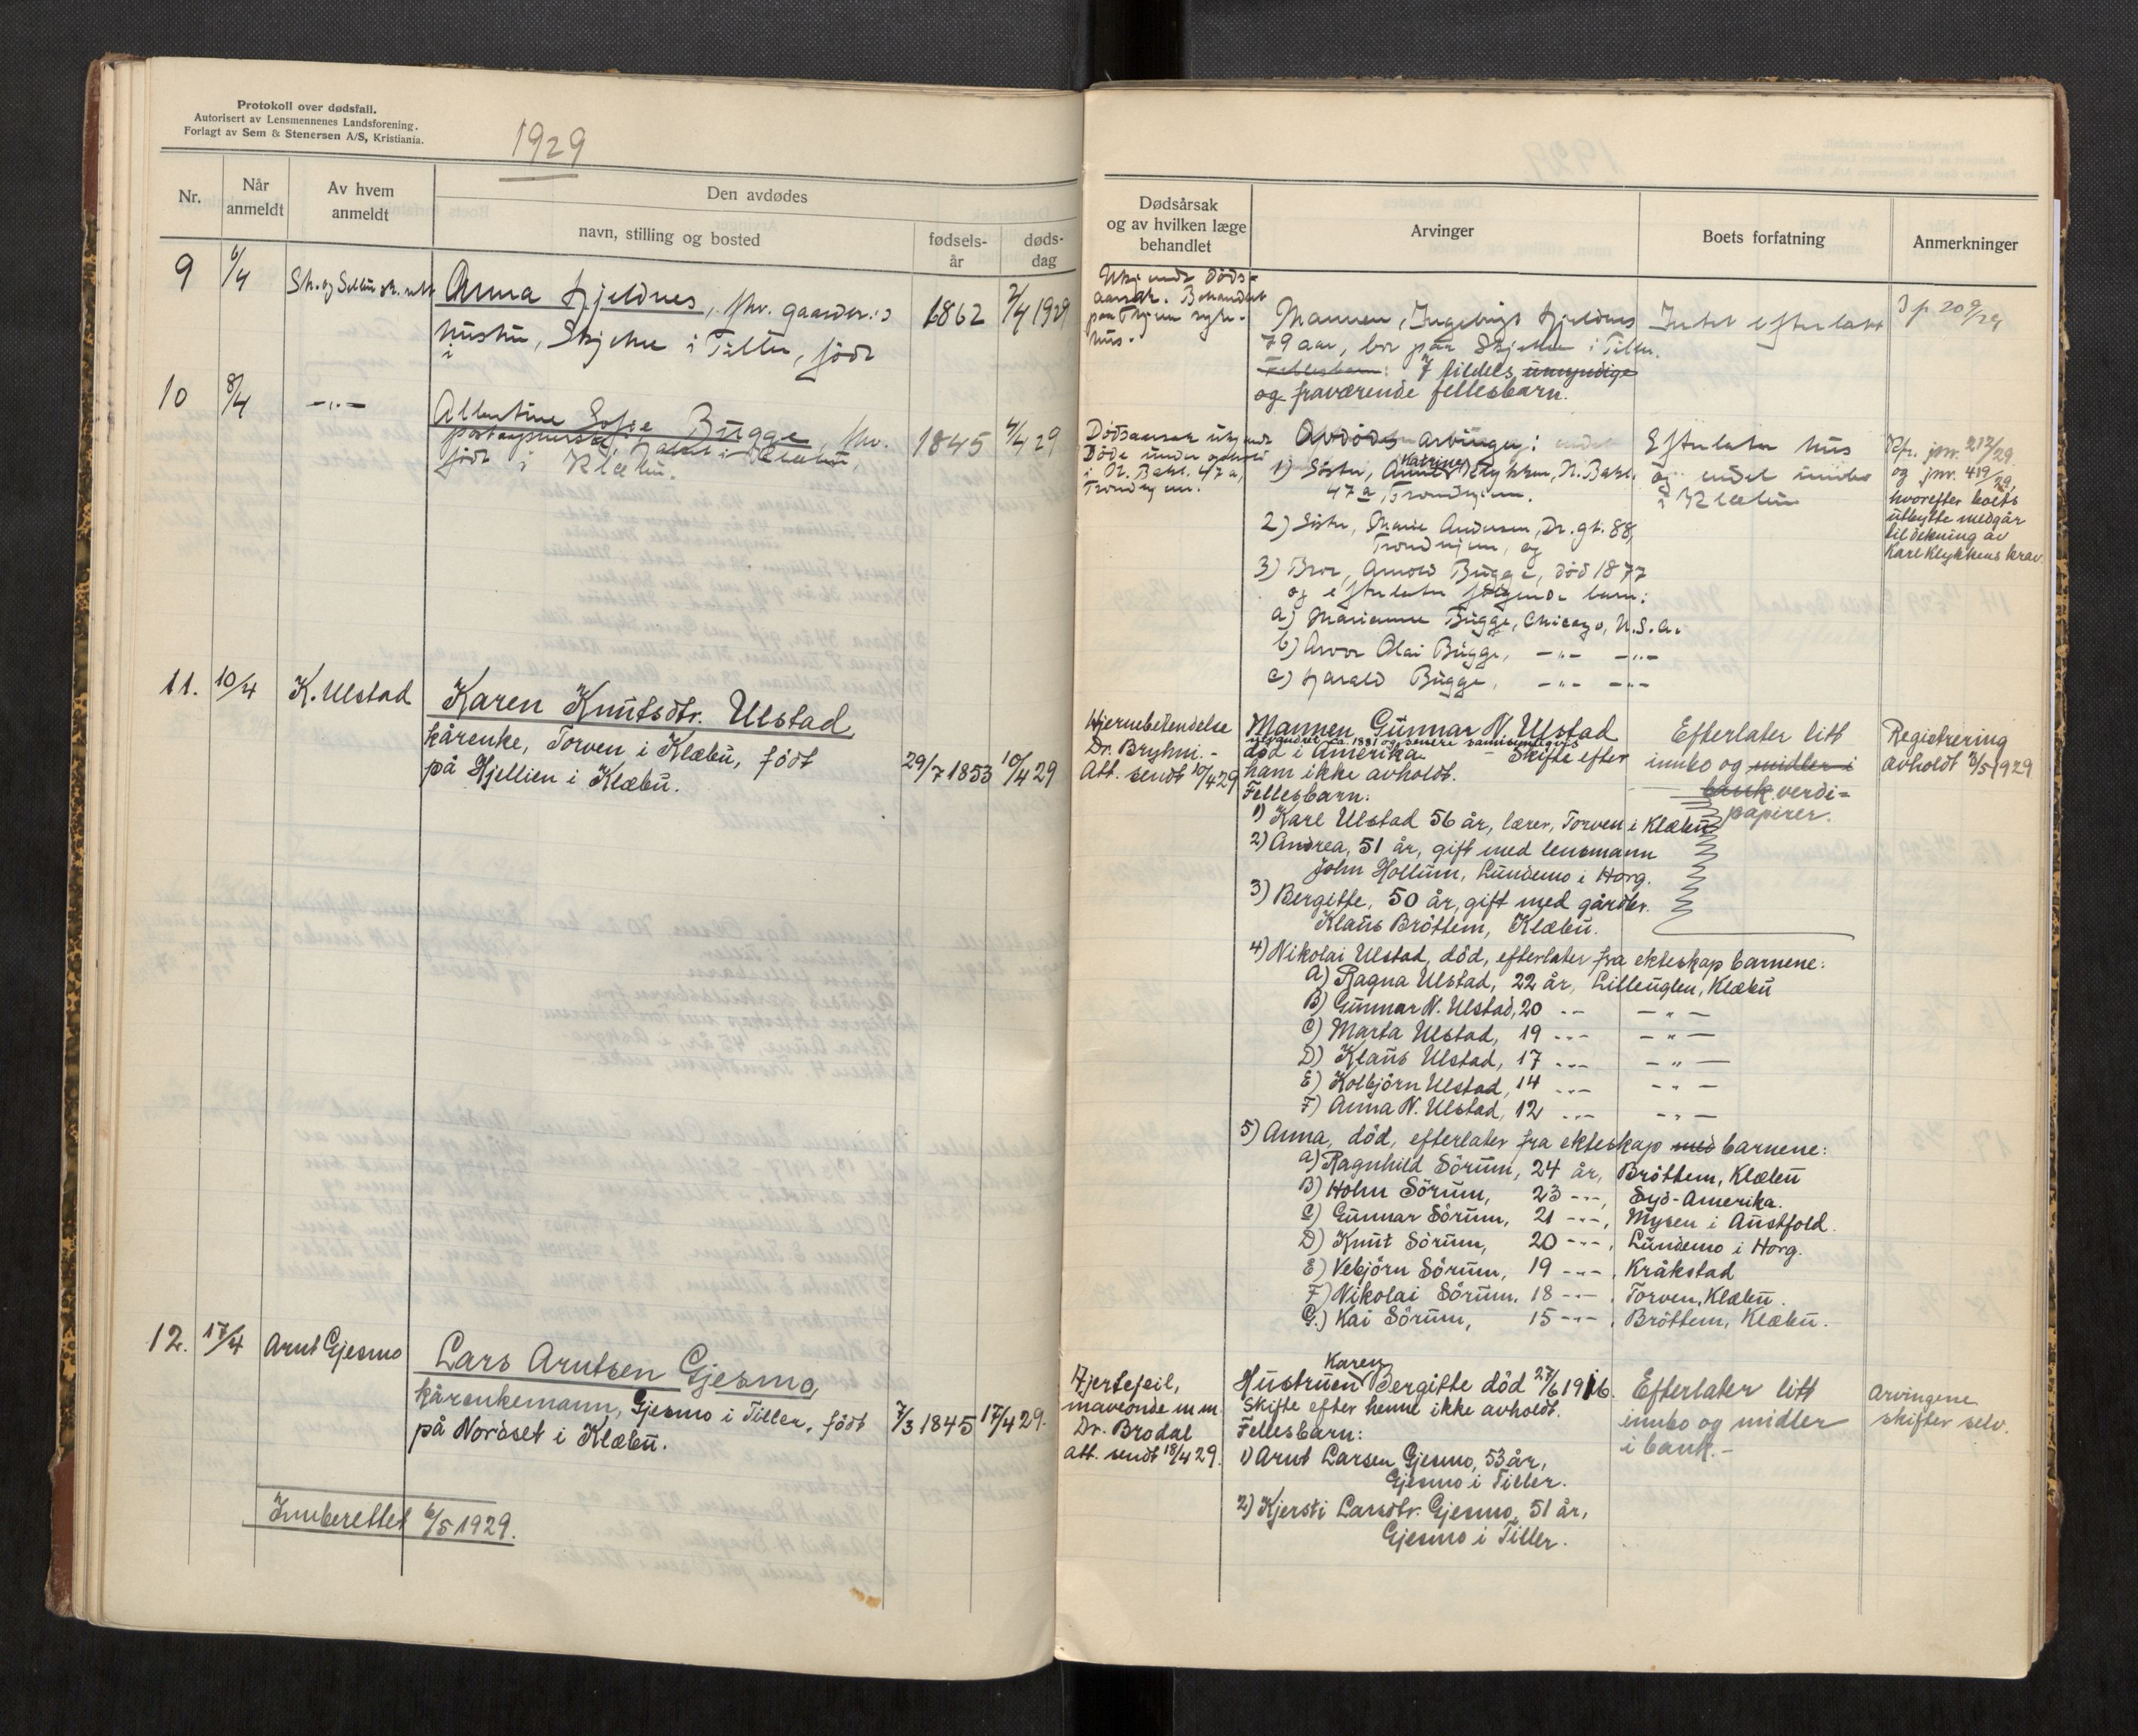 Protokoll over dødsfall.
Autorisert av Lensmennenes Landsforening.
Forlagt av Sem & Stenersen A/S, Kristiania.
1929
Nr.
Når
anmeldt
Av hvem
anmeldt
Den avdødes
navn, stilling og bosted
fødsels-
år
døds-
dag
9
6/4
Anna Fjeldnes, fhv. gaardbr.s
hustru, i Tiller, født
i
1862
2/4 1929
10
8/4
-"-
Albertine Sofie Bugge, fhv.
født i Klæbu.
1845
4/4 29
11.
10/4
K. Ulstad
Karen Knutsdtr. Ulstad,
kårenke, Torven i Klæbu, født
på Hjellien i Klæbu.
29/7 1853
10/4 29
12.
17/4
Arnt Gjesmo
Lars Arntsen Gjesmo,
kårenkemann, Gjesmo i Tiller, født
på Nordset i Klæbu.
7/3 1845
17/4 29.
Innberettet 6/5 1929.
Dødsårsak
og av hvilken læge
behandlet
Arvinger
Boets forfatning
Anmerkninger
Ukjendt døds-
aarsak. Behandlet
paa Thjem syke-
hus.
Mannen, Ingebrigt Fjeldnes
79 aar, bor paa i Tiller.
Fellesbarn: 7 tildels umyndige
og fraværende fellesbarn.
Intet efterlatt
Dødsaarsak ukjendt
Døde under ophold
i N. Bakl. 47a,
Trondhjem.
Avdødes arvinger:
1) Søster, Katrine N. Bakl.
47a, Trondhjem.
2) Søster, Marie Andersen, Dr. gt. 88,
Trondhjem, og
3) Bror, Arnold Bugge, død 1877
og efterlater følgende barn:
a) Marianne Bugge, Chicago, U.S.A.
b) Olai Bugge, -"- -"-
c) Harald Bugge, -"- -"-
Efterlater hus
og endel innbo
i Klæbu
Kfr. jnr. 212/29
og jnr. 419/29,
hvorefter boets
utbytte medgår
til dekning av
Karl Klykkens krav.
Hjernebetendelse
Dr. Bryhni.-
Att. sendt 10/4 29
Mannen Gunnar N. Ulstad
utvandret ca. 1881 og senere sannsynligvis
død i Amerika - Skifte efter
ham ikke avholdt.
Fellesbarn:
1) Karl Ulstad 56 år, lærer, Torven i Klæbu
2) Andrea, 51 år, gift med lensmann
John Hollum, Lundemo i Horg.
3) Bergitte, 50 år, gift med gårdbr.
Klaus Bröttem, Klæbu.
4) Nikolai Ulstad, død, efterlater fra ekteskap barnene:
A) Ragna Ulstad, 22 år, Lilleuglen, Klæbu
B) Gunnar N. Ulstad, 20 -"- -"-
C) Marta Ulstad, 19 -"- -"-
D) Klaus Ulstad, 17 -"- -"-
E) Kolbjörn Ulstad, 14 -"- -"-
F) Anna N. Ulstad, 12 -"- -"-
5) Anna, död, efterlater fra ekteskap med barnene:
A) Ragnhild Sörum, 24 år, Bröttem, Klæbu
B) Holm Sörum, 23 -"-, Syd-Amerika.
C) Gunnar Sörum, 21 -"-, Mysen i Austfold.
D) Knut Sörum, 20 -"-, Lundemo i Horg.
E) Vebjörn Sörum, 19 -"-, Kråkstad
F) Nikolai Sörum, 18 -"-, Torven, Klæbu.
G.) Kai Sörum, 15 -"-, Bröttem, Klæbu.
Efterlater litt
innbo og midler i
bank verdi=
papirer.
Registrering
avholdt 3/5 1929
Hjertefeil,
maveonde m m
Dr. Brodal
Att. sendt 18/4 29.
Karen
Hustruen Bergitte død 27/6 1916.
Skifte efter henne ikke avholdt.
Fellesbarn:
1) Arnt Larsen Gjesmo, 53 år,
Gjesmo i Tiller.
2) Kjersti Larsdtr. Gjesmo, 51 år,
Gjesmo i Tiller.
Efterlater litt
innbo og midler
i bank.-
Arvingene
skifter selv.